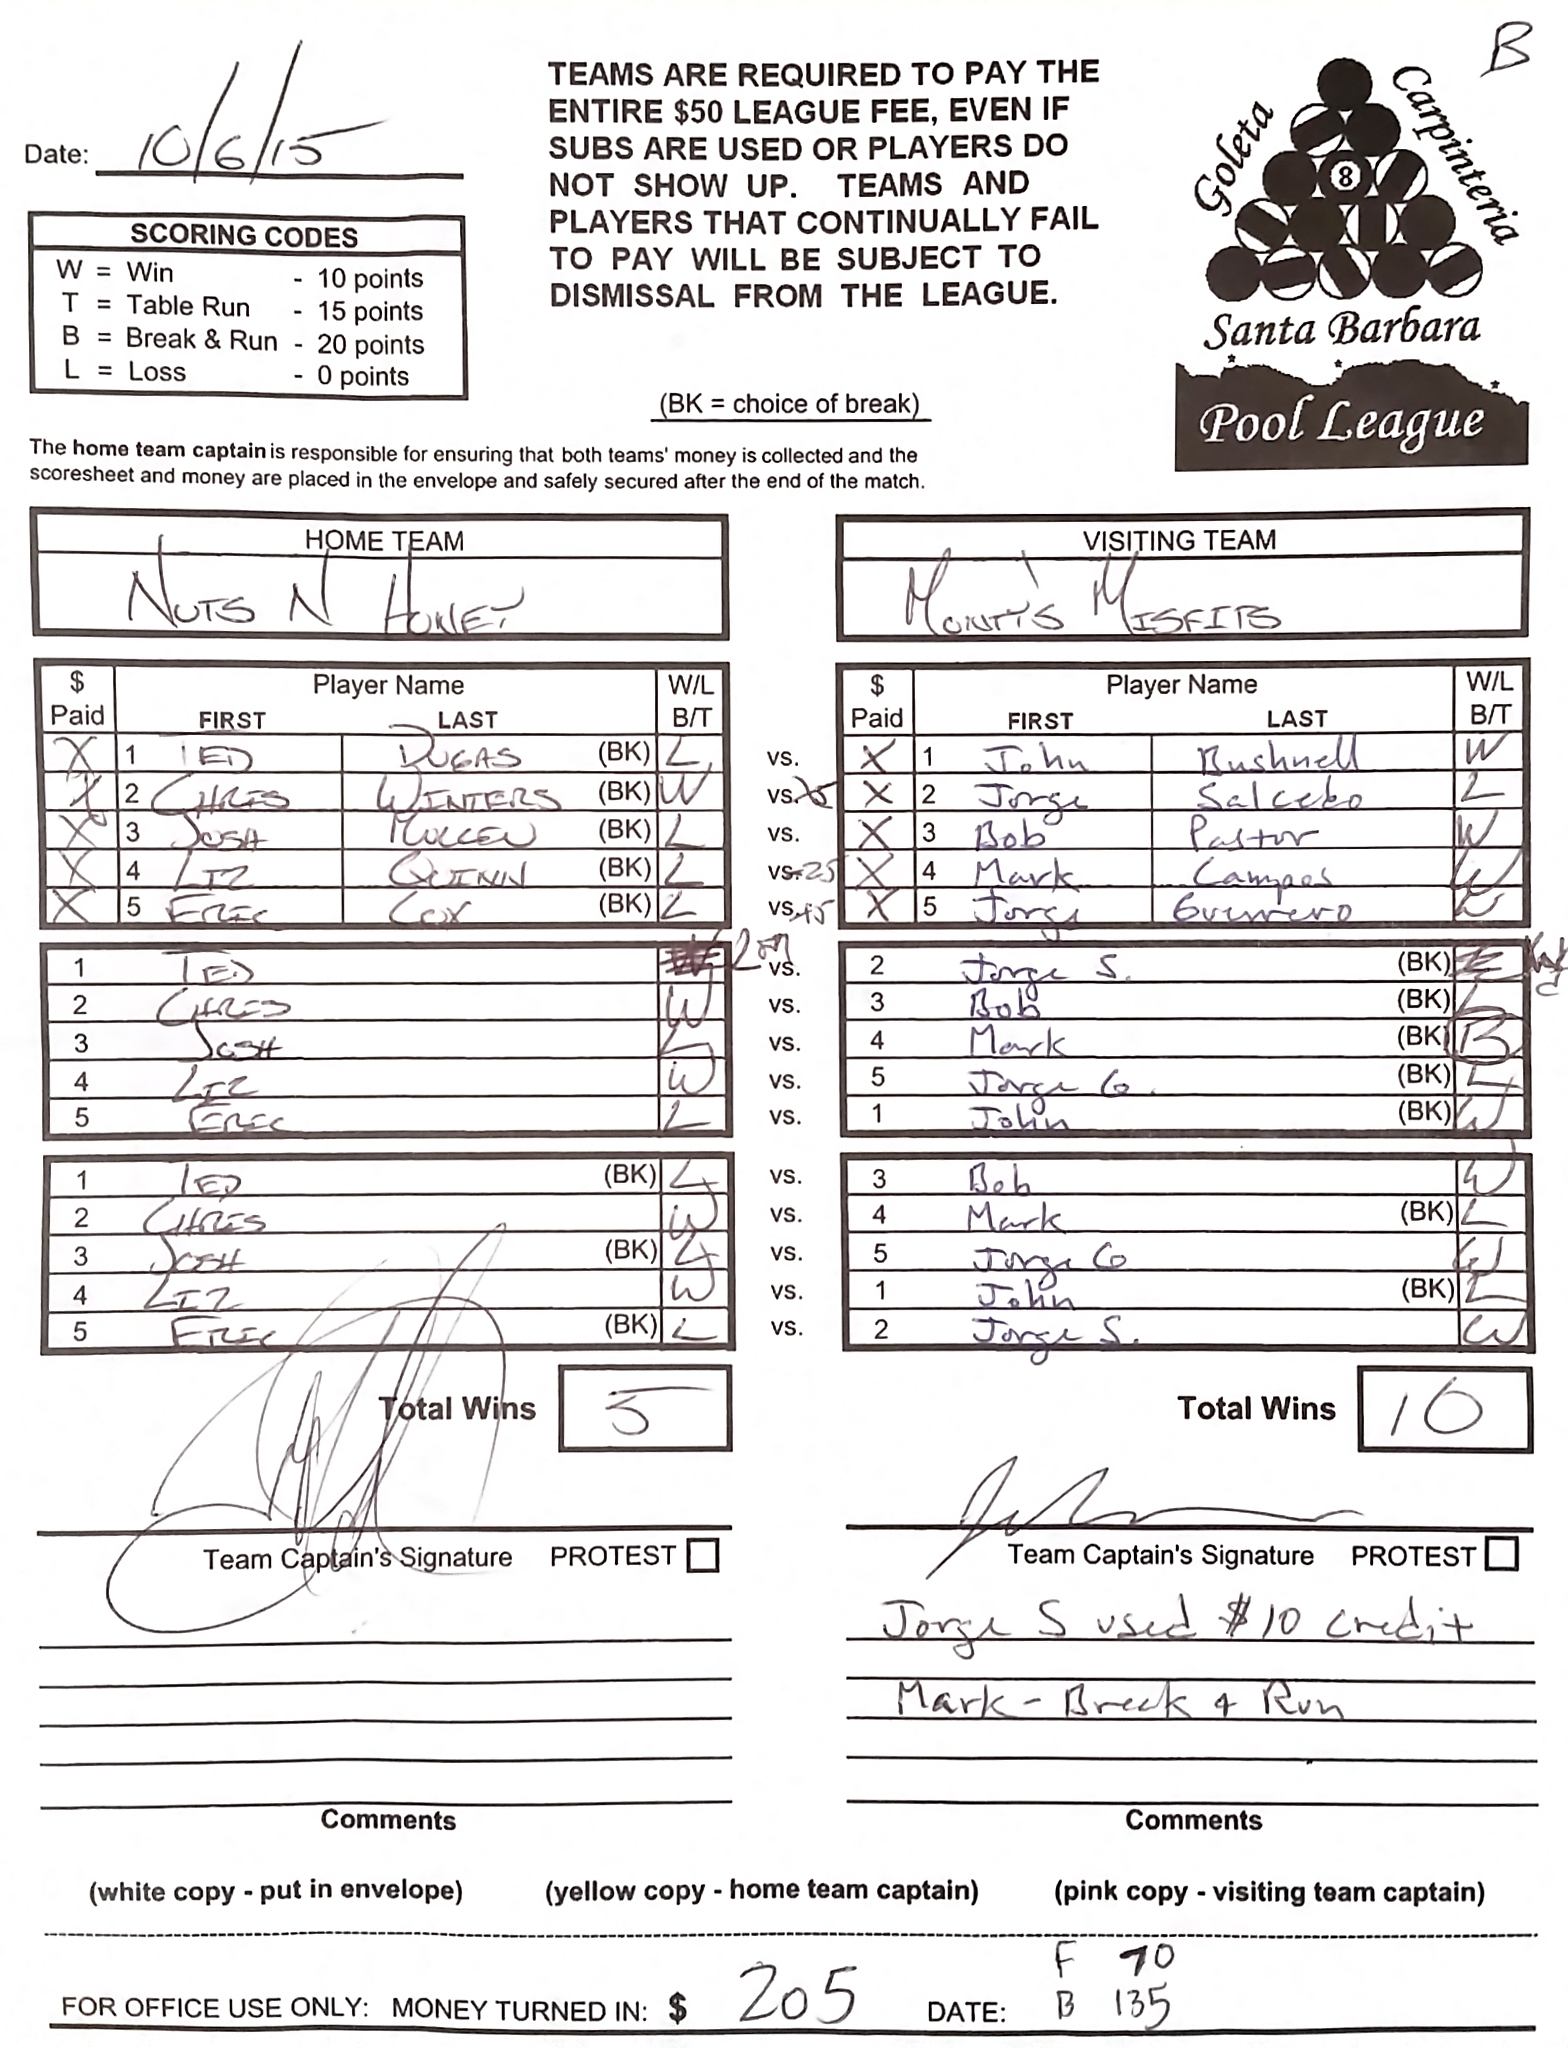 B
Date: 10/6/15
TEAMS ARE REQUIRED TO PAY THE
ENTIRE $50 LEAGUE FEE, EVEN IF
SUBS ARE USED OR PLAYERS DO
NOT SHOW UP. TEAMS AND
PLAYERS THAT CONTINUALLY FAIL
TO PAY WILL BE SUBJECT TO
DISMISSAL FROM THE LEAGUE.
Goleta
Carpinteria
8
Santa Barbara
Pool League
SCORING CODES
W = Win - 10 points
T = Table Run - 15 points
B = Break & Run - 20 points
L = Loss - 0 points
(BK = choice of break)
The home team captain is responsible for ensuring that both teams' money is collected and the
scoresheet and money are placed in the envelope and safely secured after the end of the match.
HOME TEAM VISITING TEAM
NUTS N HONEY MONTY'S MISFITS
$ Paid Player Name FIRST LAST W/L B/T $ Paid Player Name FIRST LAST W/L B/T
X 1 TED DUGAS (BK) L vs. X 1 John Bushnell W
X 2 CHRIS WINTERS (BK) W vs. X 2 Jorge Salcebo L
X 3 JOSH MULLEN (BK) L vs. X 3 Bob Pastor W
X 4 LIZ QUINN (BK) L vs-25 X 4 Mark Campos W
X 5 ERIC COX (BK) L vs. X 5 Jorge Guerrero W
1 TED L vs. 2 Jorge S. (BK)
2 CHRIS W vs. 3 Bob (BK) L
3 JOSH L vs. 4 Mark (BK) B
4 LIZ W vs. 5 Jorge G. (BK) L
5 ERIC L vs. 1 John (BK) W
1 TED (BK) L vs. 3 Bob W
2 CHRIS W vs. 4 Mark (BK) L
3 JOSH (BK) L vs. 5 Jorge G W
4 LIZ W vs. 1 John (BK) L
5 ERIC (BK) L vs. 2 Jorge S. W
Total Wins 5 Total Wins 10
Team Captain's Signature PROTEST Team Captain's Signature PROTEST
Jorge S used $10 credit
Mark - Break & Run
Comments Comments
(white copy - put in envelope) (yellow copy - home team captain) (pink copy - visiting team captain)
F 70
FOR OFFICE USE ONLY: MONEY TURNED IN: $ 205 DATE: B 135